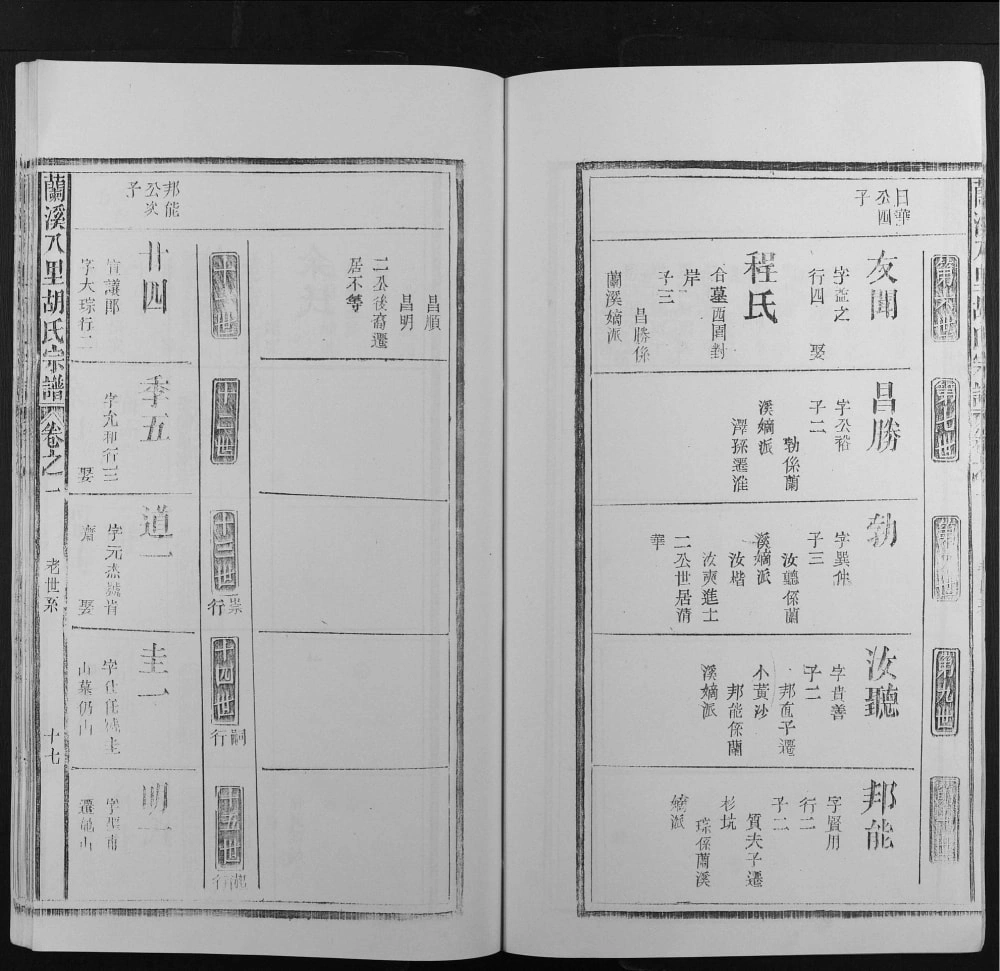 日華
公四
子
第六世
友聞
字益之
行四　娶
程氏
合墓西園對
岸
子三
昌勝係
蘭溪嫡派
第七世
昌勝
字公裕
子二
勃係蘭
溪嫡派
澤孫遷淮
勃
字巽伸
子三
汝聽係蘭
溪嫡派
汝楷
汝奭進士
二公世居清
華
第九世
汝聽
字貴善
子二
邦直子遷
小黃沙
邦能係蘭
溪嫡派
邦能
字賢用
行二
子二
質夫子遷
杉坑
琮係蘭溪
嫡派
昌順
昌明
二公後裔遷
居不等
十二世
十三世
行
十四世
嗣行
十五世
行
邦能
公次
子
廿四
宣議郎
字大琮行二
季五
字允和行三
娶
道一
字元
齋　娶
圭一
山墓仍山
明一
遷龍山
蘭溪八里胡氏宗譜
卷之一
老世系
十七